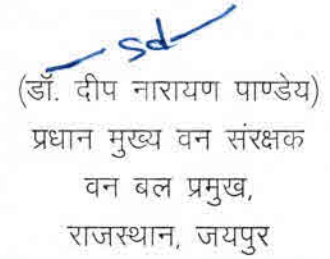 sd
(डॉ. दीप नारायण पाण्डेय)
प्रधान मुख्य वन संरक्षक
वन बल प्रमुख,
राजस्थान, जयपुर